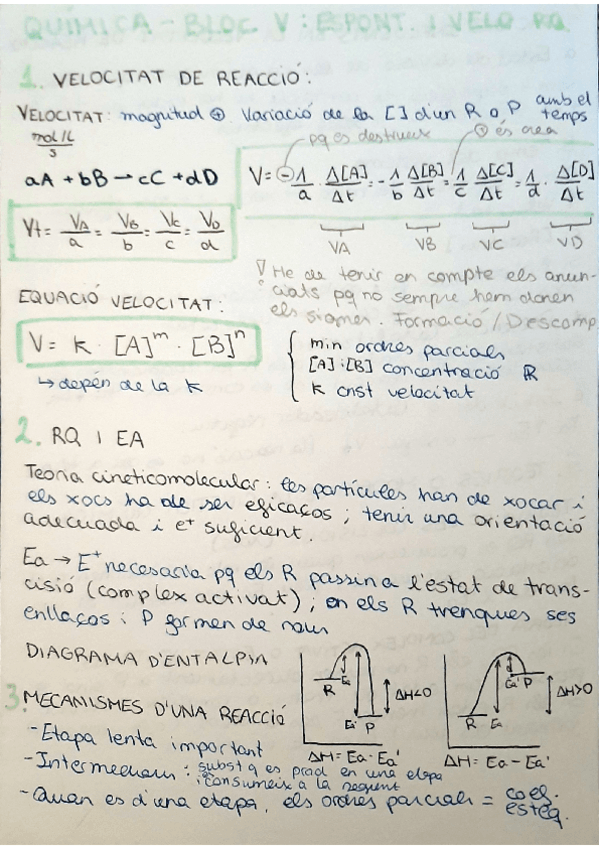 QUÍMICA - BLOC V: ESPONT. I VELO RQ.
1. VELOCITAT DE REACCIÓ:
VELOCITAT: magnitud ⊕ Variació de la [] d'un R o P amb el temps
mol/L / s
pq es destrueix
⊕ és crea
aA + bB → cC + dD
V = ⊖ 1/a · Δ[A]/Δt = - 1/b Δ[B]/Δt = 1/c Δ[C]/Δt = 1/d · Δ[D]/Δt
VA VB VC VD
Vt = VA/a = VB/b = VC/c = VD/d
! He de tenir en compte els anun-
ciats pq no sempre hem donen
els signes. Formació / Descomp.
EQUACIÓ VELOCITAT:
V = k · [A]^m · [B]^n
↳ depèn de la k
m i n ordres parcials
[A] i [B] concentració R
k cnst velocitat
2. RQ I EA
Teoria cineticomolecular: les partícules han de xocar i
els xocs ha de ser eficaços; tenir una orientació
adecuada i e+ suficient.
Ea → E+ necessaria pq els R passin a l'estat de trans-
cisió (complex activat); on els R trenques ses
enllaços i P formen de nous
DIAGRAMA D'ENTALPIA
R Ea Ea' P ΔH<0
ΔH = Ea - Ea'
R Ea Ea' P ΔH>0
ΔH = Ea - Ea'
3. MECANISMES D'UNA REACCIÓ
- Etapa lenta important
- Intermediaris: subst q es prod en una etapa
i consumeix a la següent
- Quan es d'una etapa, els ordres parcials = coef.
esteq.